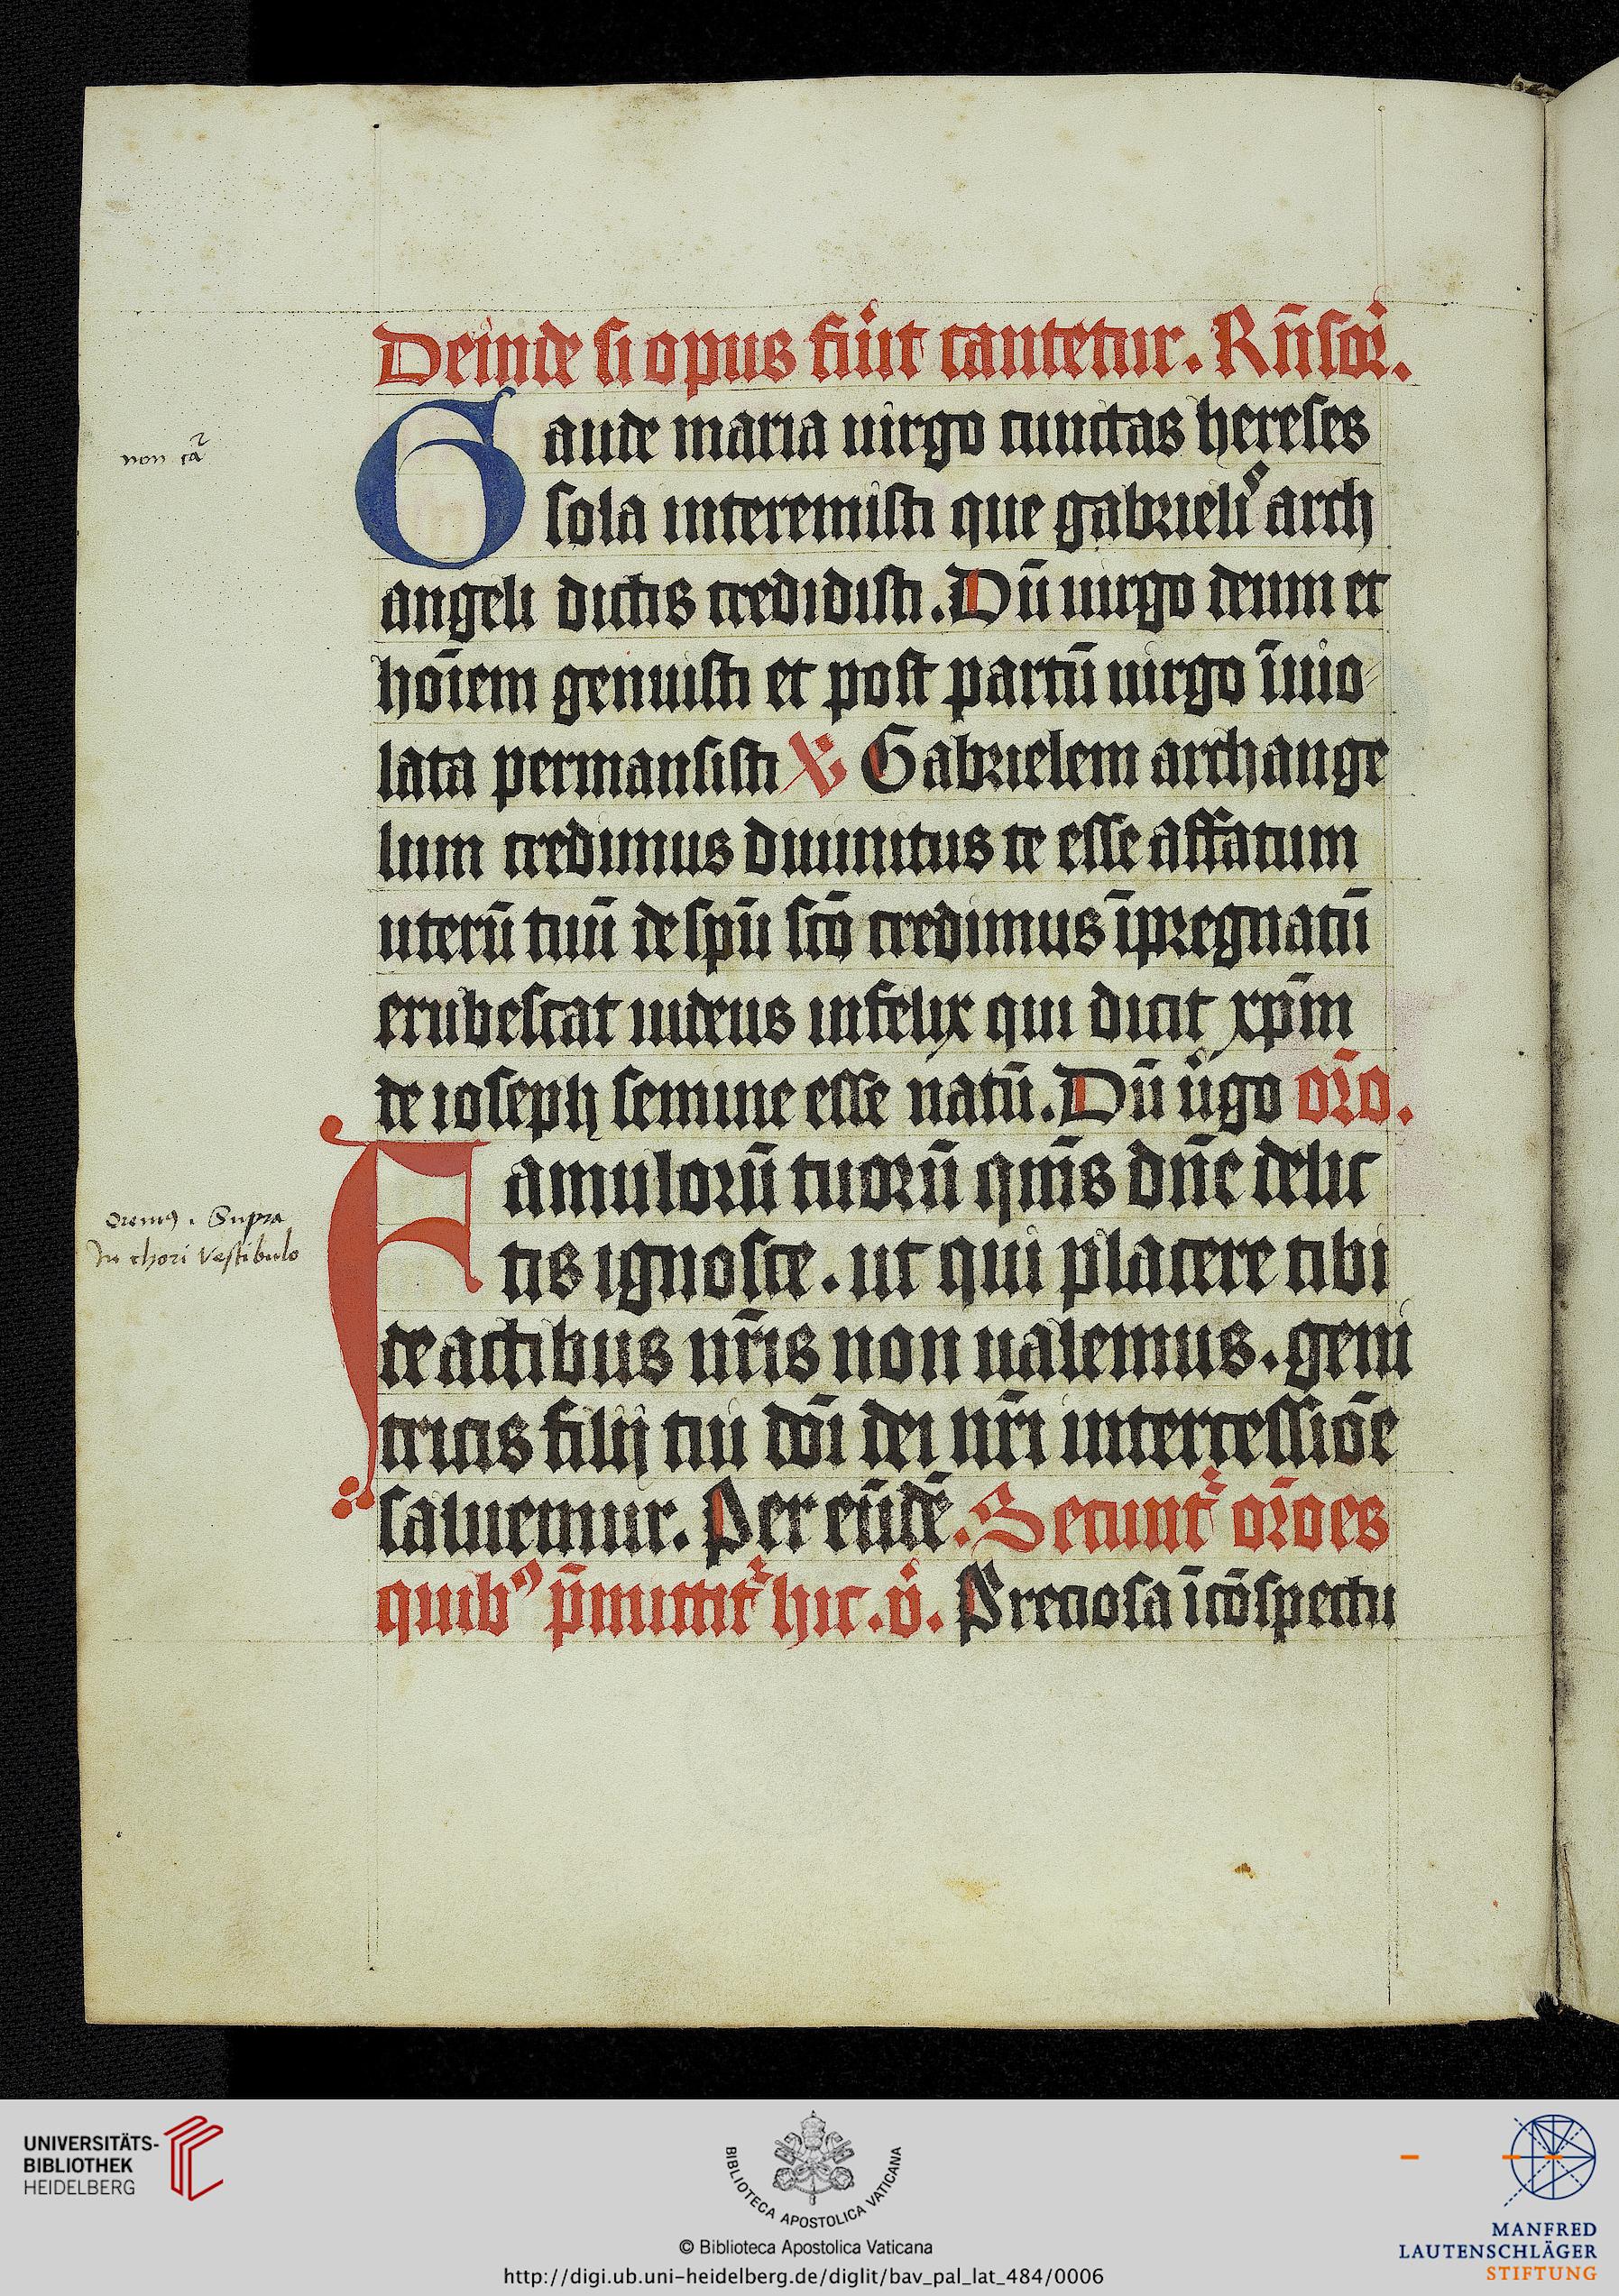 Deinde si opus fu̾it cantetur. Rn̄soꝝ.
Gaude maria uirgo cunctas hereses
sola interemisti que gabrieliꝰ arch
angeli dictis credidisti. Dū uirgo deum et
hōiem genuisti et post partū uirgo īuio
lata permansisti ℣ Gabrielem archange
lum credimus diuinitus te esse affatum
uterū tuū de spū sc̄o credimus īpregnatū
erubescat iudeus infelix qui dicit xp̄m
de ioseph semine esse natū. Dū u̾go or̄o.
non ca᷒
Famulorū tuorū qm̄s dn̄e delic
tis ignosce. ut qui placere tibi
Oremꝰ. Supra
In chori Vestibulo
de actibus nr̄is non ualemus. geni
tricis filij tui dōi dei nr̄i intercessiōe
saluemur. Per eūdē. Secunt᷑ or̄oes
quibꝰ p̄mittit᷑ hic. v̾. Preciosa ī cōspectu
UNIVERSITÄTS-
BIBLIOTHEK
HEIDELBERG
BIBLIOTECA APOSTOLICA VATICANA
© Biblioteca Apostolica Vaticana
http://digi.ub.uni-heidelberg.de/diglit/bav_pal_lat_484/0006
MANFRED
LAUTENSCHLÄGER
STIFTUNG